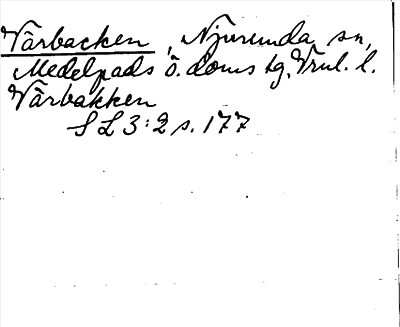 Vårbacken, Njurunda sn,
Medelpads ö. doms tg, Vrul. l.
Vårbakken
S L 3:2 s. 177